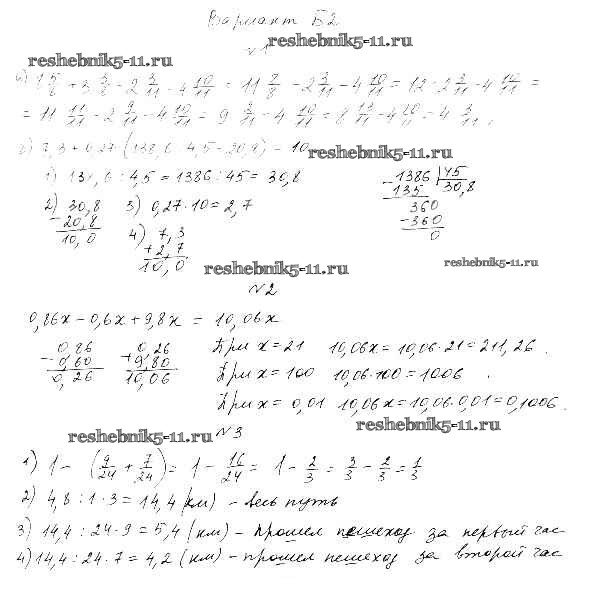 Вариант Б2
№1 reshebnik5-11.ru
reshebnik5-11.ru
+ 3 3/8 - 2 3/11 - 4 10/11 = 11 8/8 - 2 3/11 - 4 10/11 = 12 - 2 3/11 - 4 10/11 =
= 11 11/11 - 2 /11 - 4 10/11 = 9 /11 - 4 10/11 = 8 /11 - 4 10/11 = 4 3/11.
7,3 + 0,27 · (138,6 : 4,5 - 20,8) = 10 reshebnik5-11.ru
1) 138,6 : 4,5 = 1386 : 45 = 30,8
- 1386 | 45
135 30,8
360
- 360
0
2) 30,8 3) 0,27 · 10 = 2,7
- 20,8 4) 7,3
10,0 + 2,7
10,0
reshebnik5-11.ru reshebnik5-11.ru
№2
0,86x - 0,6x + 9,8x = 10,06x
0,86 0,26
- 0,60 + 9,80
0,26 10,06
При x = 21 10,06x = 10,06 · 21 = 211,26.
При x = 100 10,06 · 100 = 1006.
При x = 0,01 10,06x = 10,06 · 0,01 = 0,1006.
reshebnik5-11.ru №3 reshebnik5-11.ru
1) 1 - (9/24 + 7/24) = 1 - 16/24 = 1 - 2/3 = 3/3 - 2/3 = 1/3
2) 4,8 : 1 · 3 = 14,4 (км) - весь путь
3) 14,4 : 24 · 9 = 5,4 (км) - прошел пешеход за первый час
4) 14,4 : 24 · 7 = 4,2 (км) - прошел пешеход за второй час